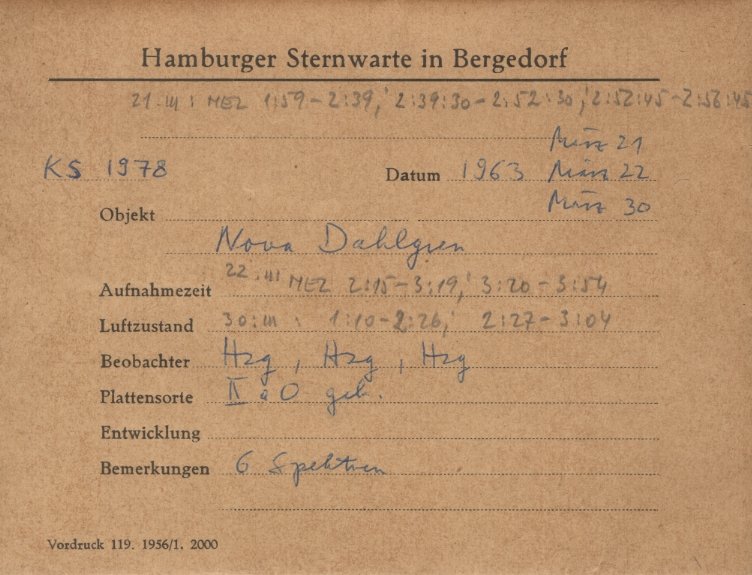 Hamburger Sternwarte in Bergedorf
21.III: MEZ 1:59-2:39, 2:39:30-2:52:30, 2:52:45-2:56:45
März 21
KS 1978 Datum 1963 März 22
Objekt März 30
Nova Dahlgren
22.III MEZ 2:15-3:19, 3:20-3:54
Aufnahmezeit
Luftzustand 30:III: 1:10-2:26, 2:27-3:04
Beobachter Hzg, Hzg, Hzg
Plattensorte II a O geb.
Entwicklung
Bemerkungen 6 Spektren
Vordruck 119. 1956/1. 2000